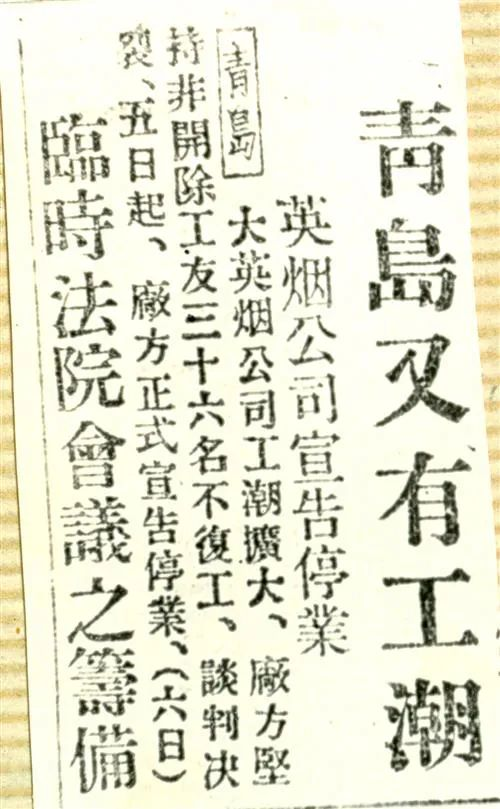 青島又有工潮
英烟公司宣告停業
青島
大英烟公司工潮擴大、廠方堅
持非開除工友三十六名不復工、談判决
裂、五日起、廠方正式宣告停業、（六日）
臨時法院會議之籌備